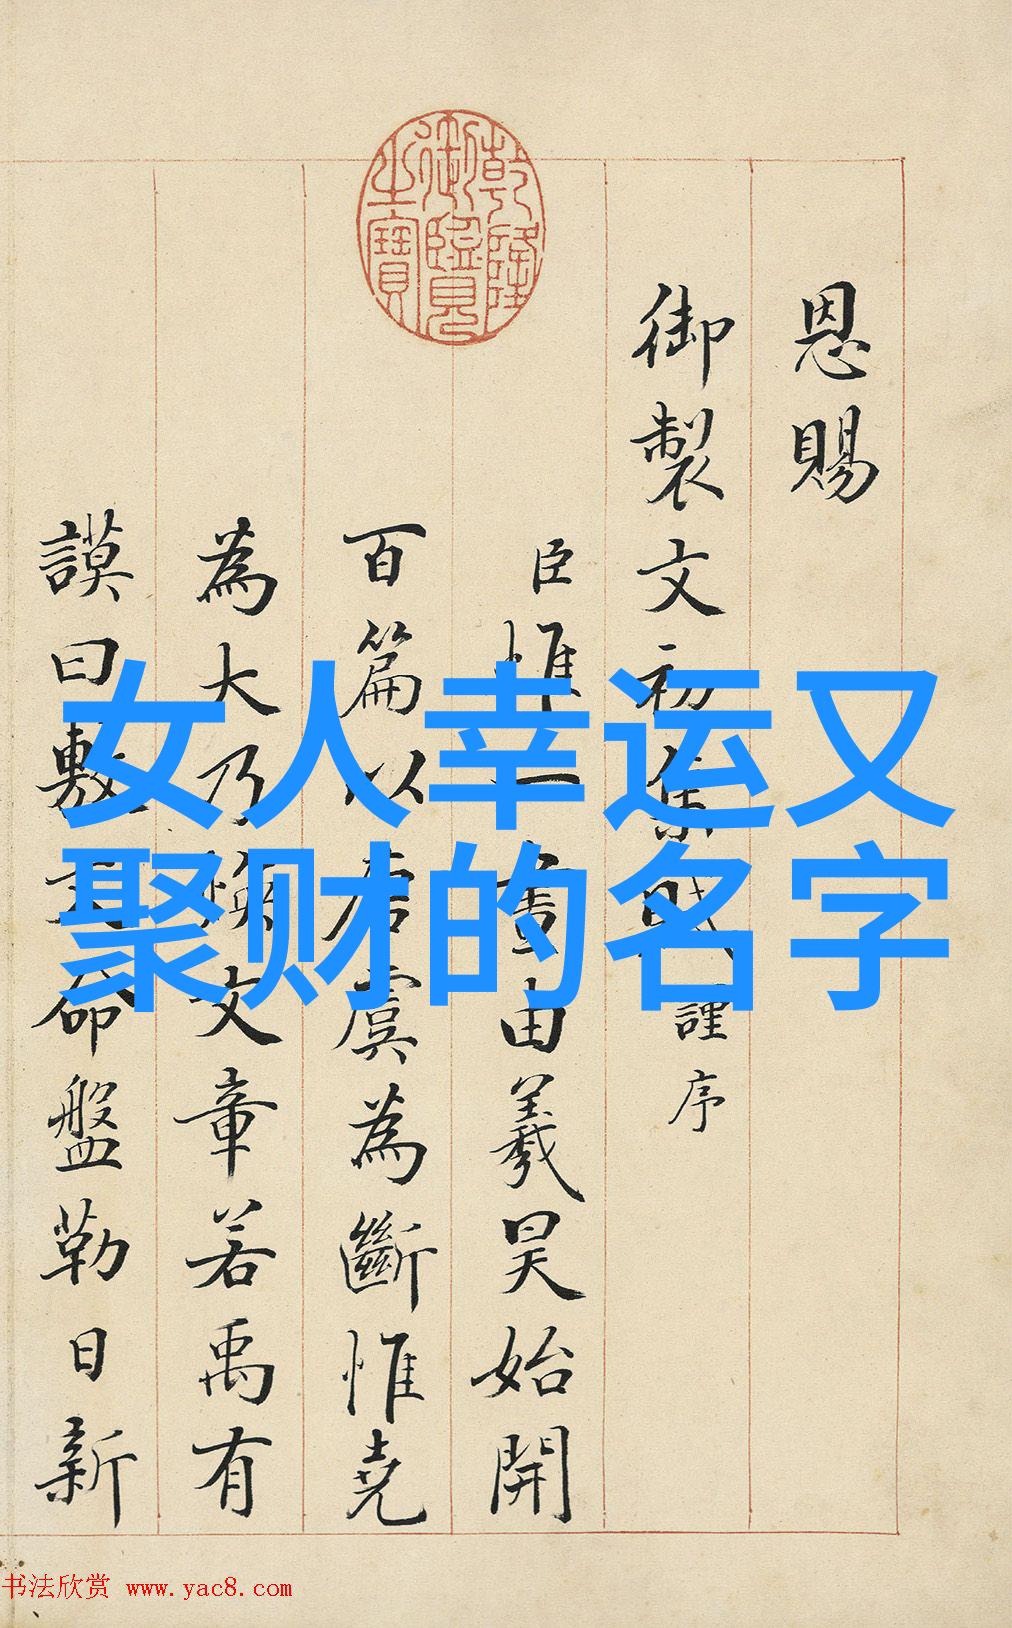 乾隆
御覽
之寶
恩賜
御製文初集謹序
臣惟一畫由羲昊始開
百篇以唐虞為斷惟堯
為大乃煥文章若禹有
謨曰敷文命盤勒日新
女人幸运又
聚财的名字
书法欣赏 www.yac8.com